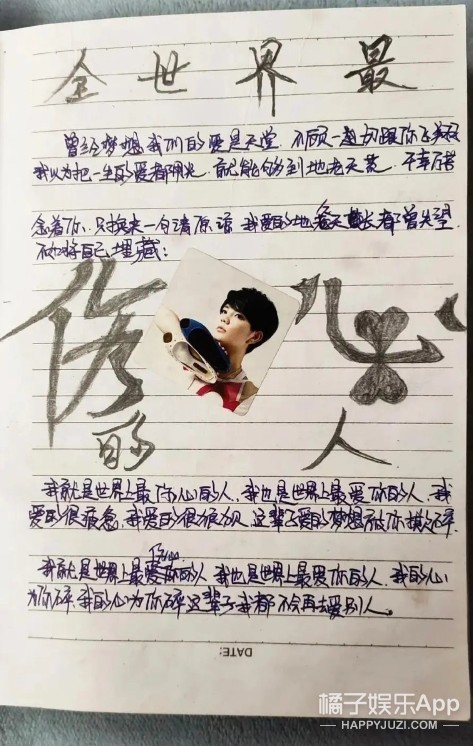 全世界最
曾经梦想我们的爱是天堂.不顾一切跟你飞翔
我以为把一生的爱都用光.就能够到地老天荒.千辛万苦
念着你.只换来一句请原谅 我爱的地天长都曾失望.
不如将自己埋藏:
伤心
的人
我就是世界上最伤心的人.我也是世界上最爱你的人.我
爱的很疲惫.我爱的很狼狈.这辈子爱的梦想被你撕碎.
我就是世界上最爱你的人 我也是世界上最爱你的人.我的心
为你碎.我的心为你碎这辈子我都不会再去爱别人.
DATE:
橘子娱乐App
HAPPYJUZI.COM